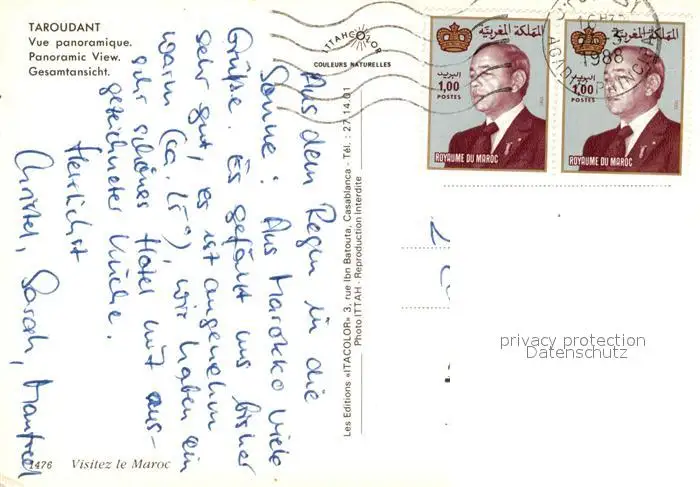 TAROUDANT
Vue panoramique.
Panoramic View.
Gesamtansicht.
ITTAHCOLOR
COULEURS NATURELLES
Aus dem Regen in die
Sonne: Aus Marokko viele
Grüße. Es gefällt uns bisher
sehr gut, es ist angenehm
warm (ca. 25°), wir haben ein
sehr schönes Hotel mit aus-
gezeichneter Küche.
Herzlichst
Christel, Sarah, Manfred
1476 Visitez le Maroc
Les Editions «ITACOLOR» 3, rue Ibn Batouta, Casablanca - Tél. : 27 14 01
Photo ITTAH - Reproduction Interdite
المملكة المغربية
البريد
1,00
POSTES
ROYAUME DU MAROC
المملكة المغربية
البريد
1,00
POSTES
ROYAUME DU MAROC
1988
privacy protection
Datenschutz